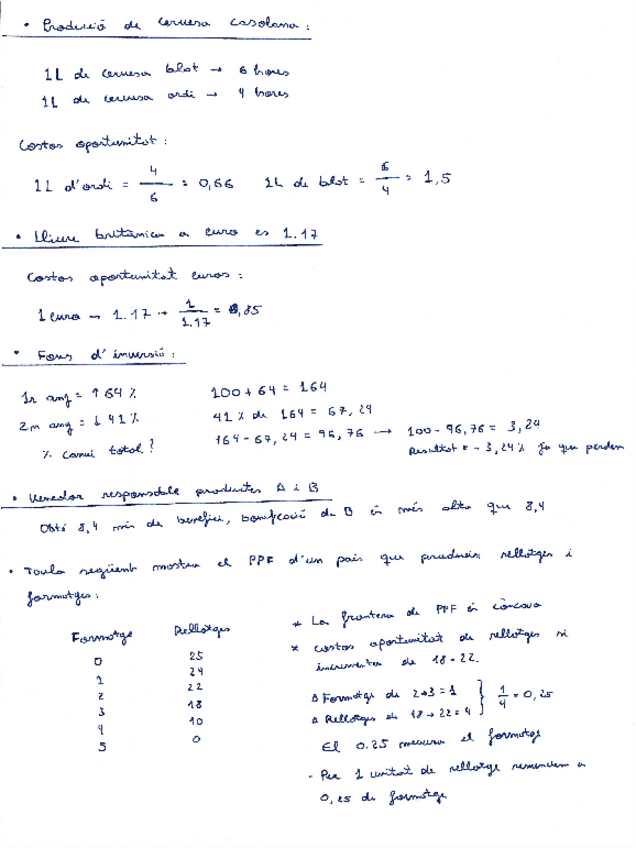 • Producció de cervesa casolana :
1L de cervesa blat → 6 hores
1L de cervesa ordi → 4 hores
Costos oportunitat :
1L d'ordi = 4/6 = 0,66 1L de blat = 6/4 = 1,5
• Lliure britànica a euro es 1.17
Costos oportunitat euros :
1 euro → 1.17 → 1/1.17 = 0,85
• Fons d'inversió :
1r any = ↑ 64 % 100 + 64 = 164
2n any = ↓ 41 % 41 % de 164 = 67,24
% canvi total? 164 - 67,24 = 96,76 → 100 - 96,76 = 3,24
Resultat = - 3,24 % ja que perdem
• Venedor responsable productes A i B
Obté 8,4 min de benefici, bonificació de B és més alta que 8,4
• Taula següent mostra el PPF d'un país que produeix rellotges i
formatges :
Formatge Rellotges
0 25
1 24
2 22
3 18
4 10
5 0
* La frontera de PPF és còncava
* costos oportunitat de rellotges si
incrementen de 18 - 22.
Δ Formatge de 2→3 = 1 } 1/4 = 0,25
Δ Rellotges de 18 → 22 = 4
El 0.25 mesura el formatge
- Per 1 unitat de rellotge renunciem a
0,25 de formatge